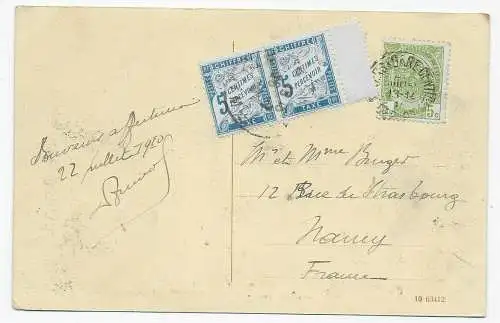 CHIFFRE
5
CENTIMES
A PERCEVOIR
TAXE
CHIFFRE
5
CENTIMES
A PERCEVOIR
TAXE
5c
Souvenir
22 juillet 1910
Mr et Mme Burger
12 Rue de Strasbourg
Nancy
France
10 63412